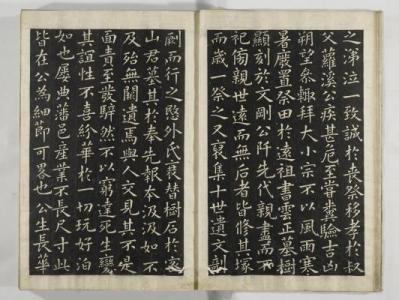 之涕泣一致誠於喪祭移孝於叔
父蘿溪公疾甚危至嘗糞驗吉凶
朔望叅輙拜大小宗不以風雨寒
暑廢置祭田於遠祖書雲正墓樹
顯刻於文剛公阡先代親盡而不
祀傍親世遠而無后者皆修其塚
而歲一祭之又裒集十世遺文剖
劂而行之愍外氏衰替樹石於
山君墓其於奉先報本汲汲如不
及殆無闕遺焉與人交見其不是
面責至發騂然不以窮達死生變
其誼性不喜紛華於一切玩好泊
如也屢典藩邑産業不長尺寸此
皆在公為細節可畧也公生長華